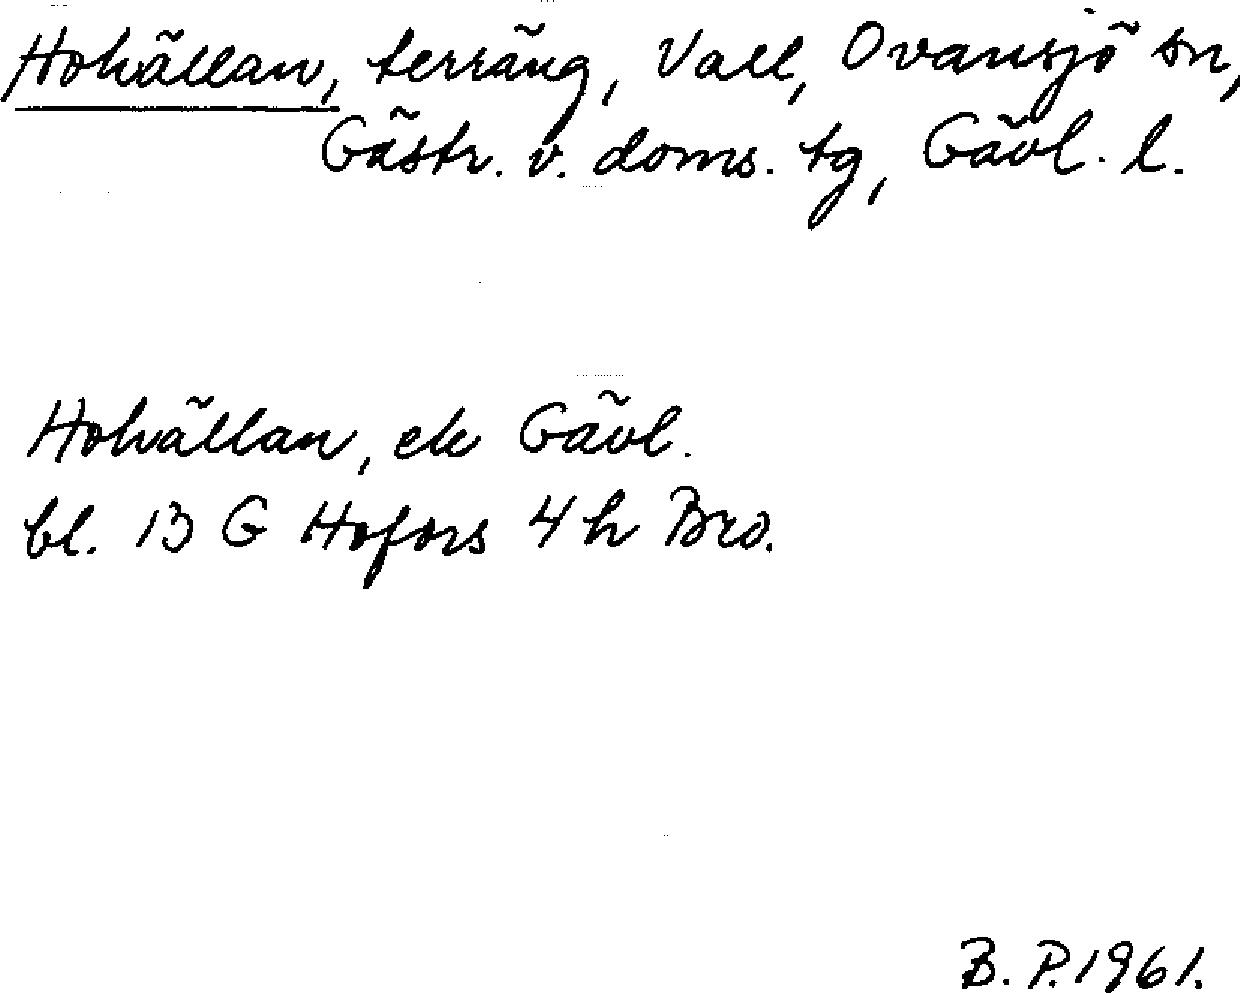 Hohällan, terräng, Vall, Ovansjö sn,
Gästr. v. doms. tg, Gävl. l.
Hohällan, ek Gävl.
bl. 13 G Hofors 4 h Bro.
B. P. 1961.